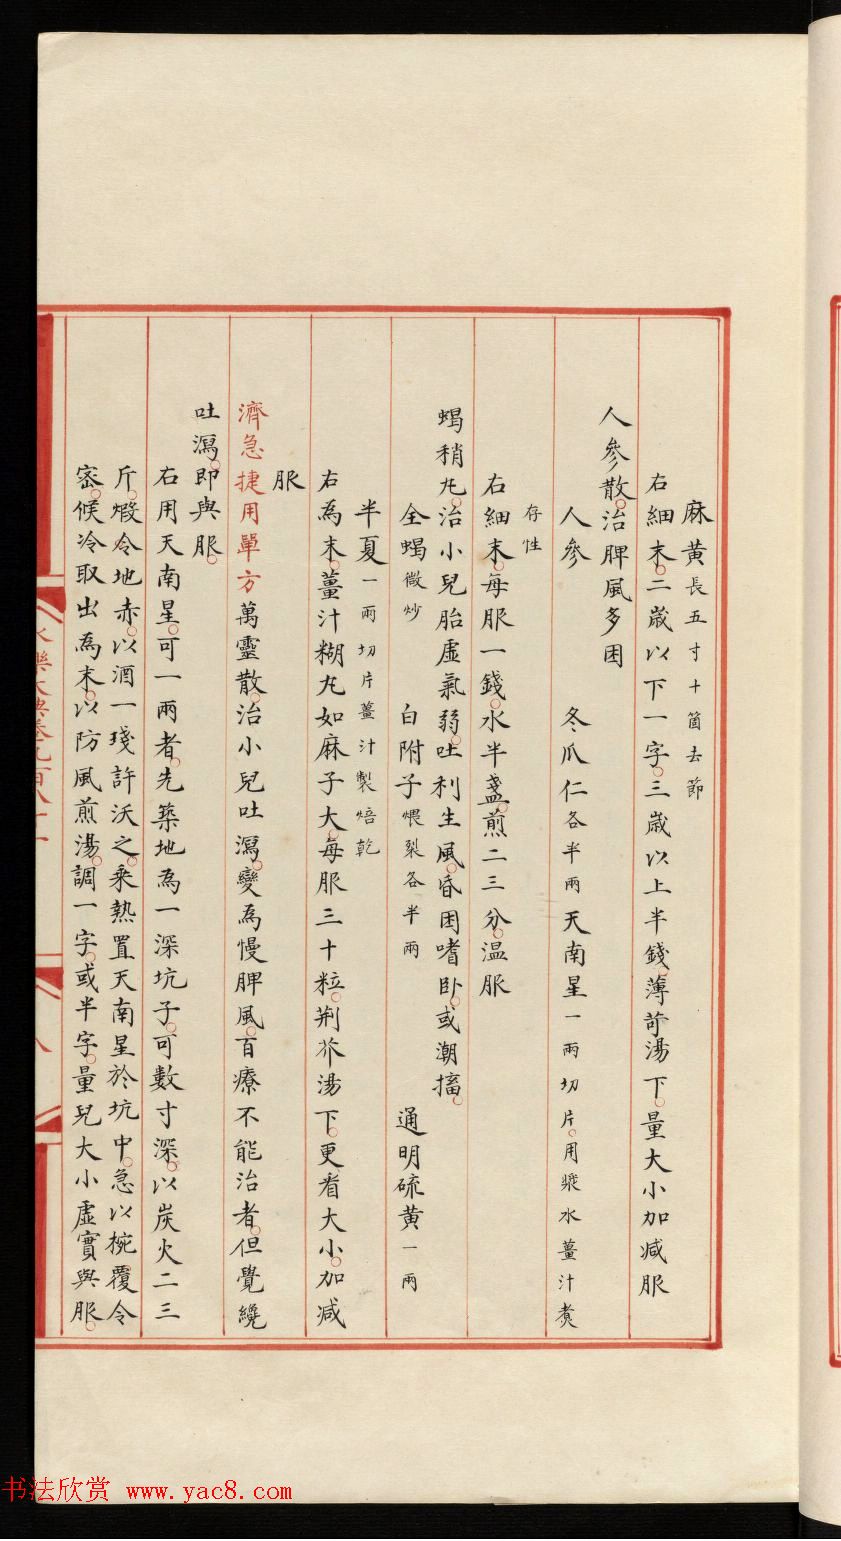 麻黄長五寸十箇去節
右細末。二歲以下一字。三歲以上半錢。薄荷湯下。量大小加减服
人參散。治脾風多困
人參 冬瓜仁各半兩 天南星一兩切片。用漿水薑汁煑
存性
右細末。每服一錢。水半盞。煎二三分。温服
蝎稍丸。治小兒胎虛氣弱。吐利生風。昏困嗜卧。或潮搐。
全蝎微炒 白附子煨裂各半兩 通明硫黄一兩
半夏一兩切片薑汁製焙乾
右為末。薑汁糊丸如麻子大。每服三十粒。荆芥湯下。更看大小。加减
服
濟急捷用單方萬靈散。治小兒吐瀉。變為慢脾風。百療不能治者。但覺纔
吐瀉。即與服。
右用天南星。可一兩者。先築地為一深坑子。可數寸深。以炭火二三
斤。煅令地赤。以酒一琖許沃之。乘熱置天南星於坑中。急以椀覆令
密。候冷取出為末。以防風煎湯。調一字。或半字。量兒大小虛實與服。
永樂大典卷九百八十一
八
书法欣赏 www.yac8.com